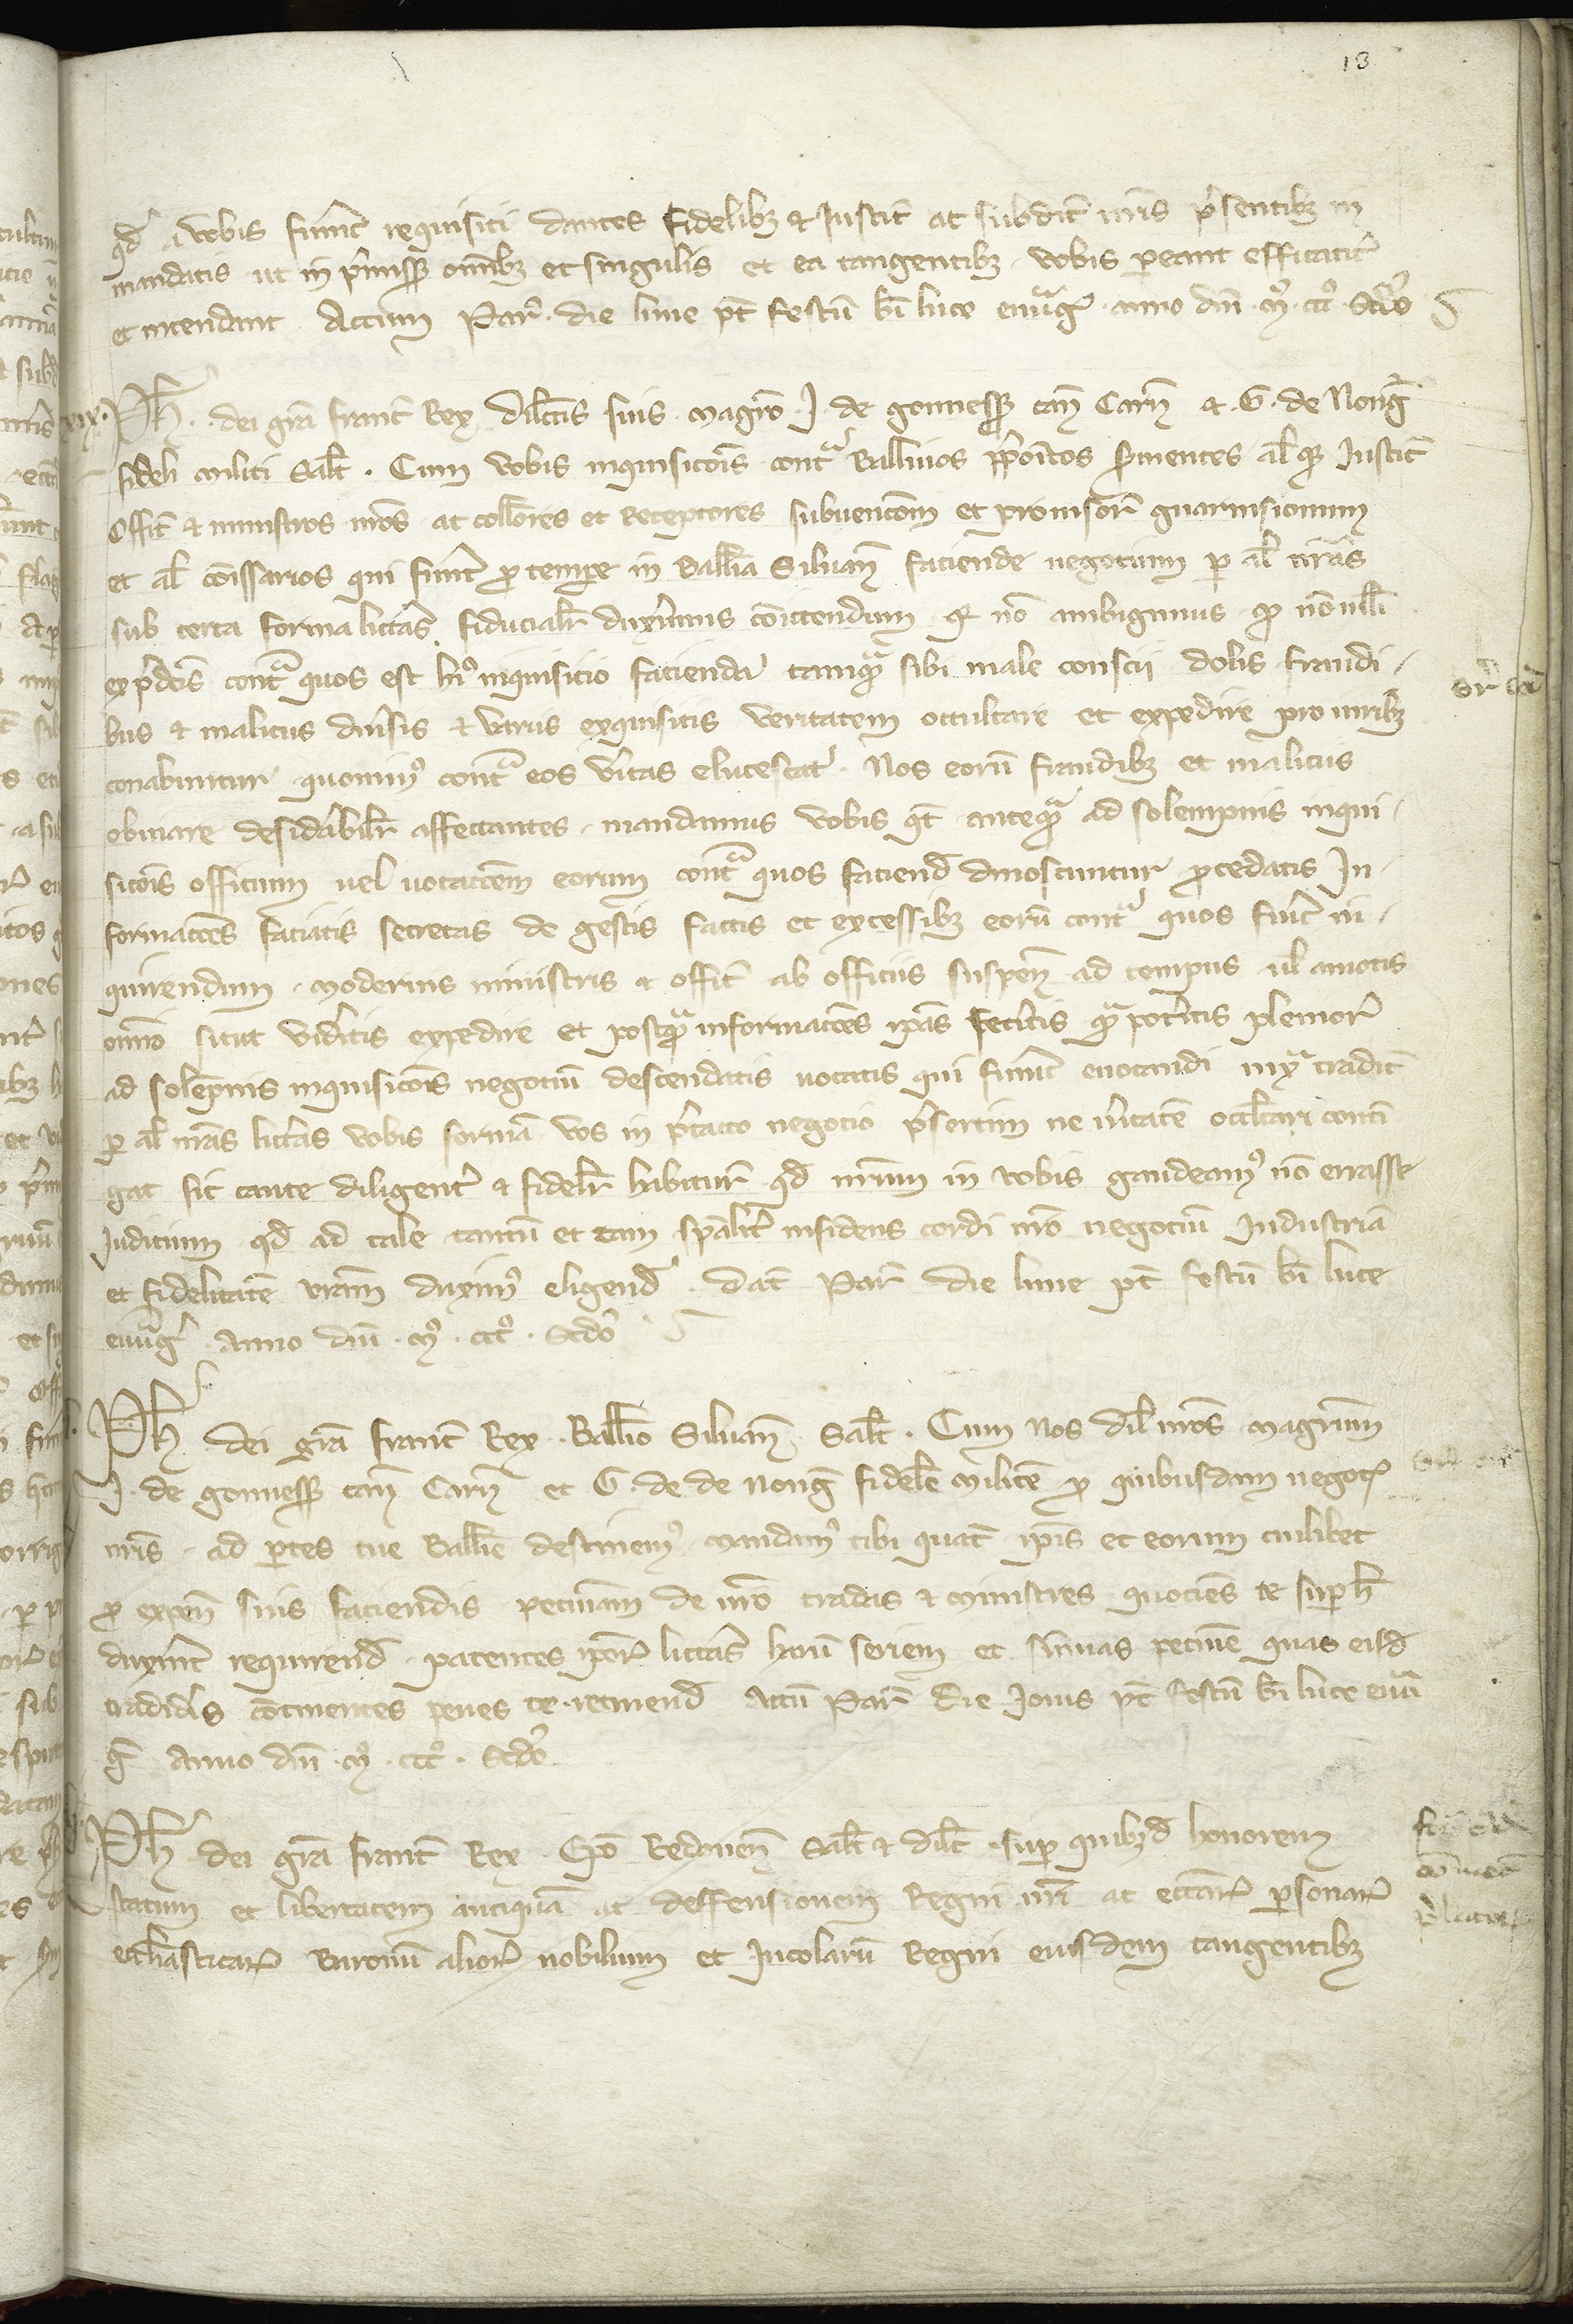 13
qd a vobis fuint requisiti dantes fidelibz & Justic ac subdit nris psentibz in
mandatis ut in pmiss omnibz et singulis et ea tangentibz vobis pareant efficacit
et intendant Actum Par. die lune pt festu bi luce evag. anno dni .mo.ccco. Scdo
xix.
Ph. dei gra franc Rex dilcis suis magro .J. de gonness can Carn & .G. de Nong
fideli militi Salt. Cum vobis inquisicois conta Ballivos pposicos svientes alsq Justic
Offic & ministros nros ac collcores et Receptores subvencom et provisor guarnisionum
et al comissarios qui fuint p tempore in Ballia Silvan faciende negotium p al nras
sub certa forma lictas fiducialr duximus comictendum & no ambigimus q nonulli
ex pdcis conta quos est hui inquisicio facienda tamqa sibi male conscii dolis fraudi-
bus & maliciis divsis & variis exquisitis veritatem occultare et expedire pro viribz
conabuntur quomin conta eos vitas elucescat. Nos eoru fraudibz et maliciis
obviare desidabilr affectantes mandamus vobis qt anteqa ad solempnis inqui-
sicois officium vel vocaccem eorum conta quos faciend dinoscuntur pcedatis In-
formaccos faciatis secretas de gestis factis et excessibz eoru conta quos fuit in-
quirendum modernis ministris & offic ab officiis suspen ad tempus vl amotis
omnio sicut videitis expedire et postqa informaccoes ipas feceitis qa poteitis plenior
ad solepnis inquisicois negociu descendatis vocatis qui fuint evocandi iuxa tradit
p al nras lictas vobis forma vos in ptacto negocio psertim ne vitate occltari contin
gat sic caute diligent & fidelr habitur qd nrum in vobis gaudeam no errasse
Judicium qd ad tale tantu et tam spalit insidens cordi nro negociu Industria
et fidelitate vram duxim eligend. Dat Par die lune pt festu bi luce
evag. Anno dni .mo. ccco. Scdo
Ph dei gra franc Rex. Ballio Silvan Salt. Cum Nos dil nros magrum
J. de gonness can Carn et G. de de nong fidele milite p quibusdam negoc
nris ad ptes tue Ballie destinem mandam tibi quat ipis et eorum cuilibet
p expen suis faciendis pecuniam de nro tradas & ministres quociens te sup h
duxint requirend patentes ipor lictas haru seriem et sumas pecunie quas eisd
tradidis cotinentes penes te retinend Actu Par die Jovis pt festu bi luce eva
g Anno dni .mo. ccco. Scdo
Ph dei gra franc Rex Epo Redonen Salt & dilc sup quibzd honorem
statum et libertatem antiqua ac deffensionem Regni nri ac eccar psonar
ecclasticar Baronu alior nobilium et Incolaru Regni eiusdem tangentibz